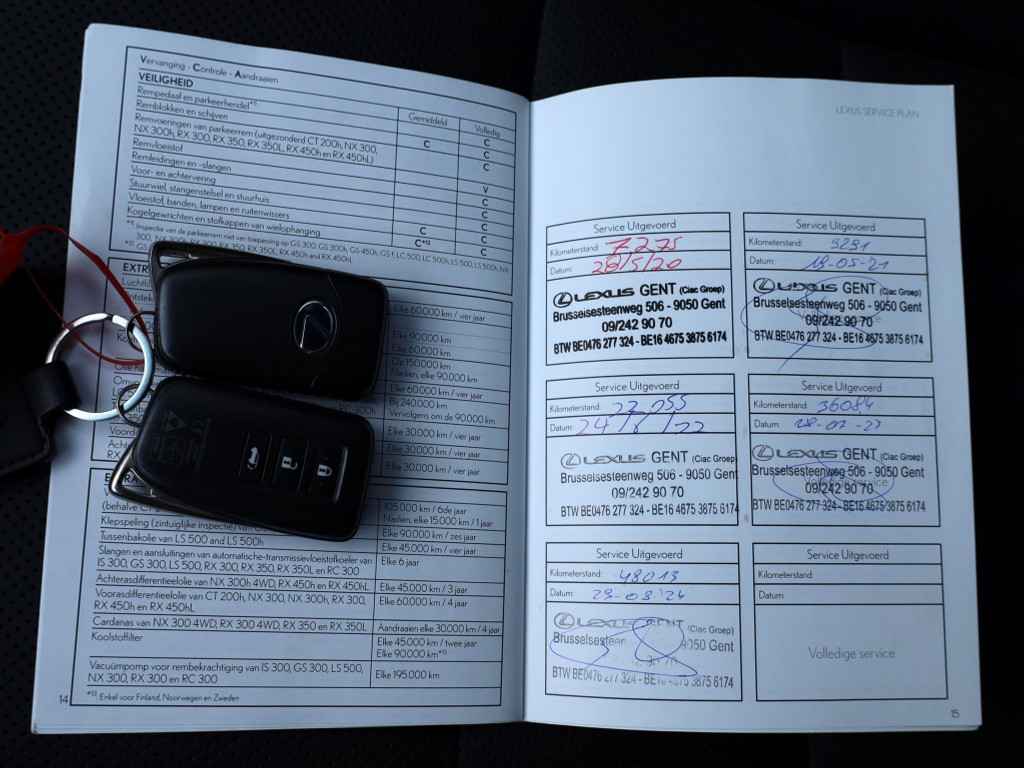 Vervanging - Controle - Aandraaien
VEILIGHEID
Gemiddeld
Volledig
Rempedaal en parkeerhendel*¹
C
Remblokken en schijven
C
Remvoeringen van parkeerrem (uitgezonderd CT 200h, NX 300,
NX 300h, RX 300, RX 350, RX 350L, RX 450h en RX 450hL)
C
C
Remvloeistof
Remleidingen en -slangen
V
Voor- en achtervering
C
Stuurwiel, slangenstelsel en stuurhuis
C
Vloeistof, banden, lampen en ruitenwissers
C
C
Kogelgewrichten en stofkappen van wielophanging
C*¹²
C
EXTR
Luchtfil
Elke 60.000 km / vier jaar
Elke 90.000 km
Elke 60.000 km
Na 150.000 km
Nadien, elke 90.000 km
Elke 60.000 km / vier jaar
Bij 240.000 km
Vervolgens om de 90.000 km
Elke 30.000 km / vier jaar
Elke 30.000 km / vier jaar
Elke 30.000 km / vier jaar
105.000 km / 6de jaar
Nadien, elke 15.000 km / 1 jaar
Klepspeling (zintuiglijke inspectie)
Elke 90.000 km / zes jaar
Tussenbakolie van LS 500 and LS 500h
Elke 45.000 km / vier jaar
Slangen en aansluitingen van automatische-transmissievloeistofkoeler van
IS 300, GS 300, LS 500, RX 300, RX 350, RX 350L en RC 300
Elke 6 jaar
Achterasdifferentieelolie van NX 300h 4WD, RX 450h en RX 450hL
Elke 45.000 km / 3 jaar
Voorasdifferentieelolie van CT 200h, NX 300, NX 300h, RX 300,
RX 450h en RX 450hL
Elke 60.000 km / 4 jaar
Cardanas van NX 300 4WD, RX 300 4WD, RX 350 en RX 350L
Aandraaien elke 30.000 km / 4 jaar
Koolstoffilter
Elke 45.000 km / twee jaar
Elke 90.000 km*¹³
Vacuümpomp voor rembekrachtiging van IS 300, GS 300, LS 500,
NX 300, RX 300 en RC 300
Elke 195.000 km
*¹³ Enkel voor Finland, Noorwegen en Zweden
14
LEXUS SERVICE PLAN
Service Uitgevoerd
Kilometerstand: 7275
Datum: 28/5/20
LEXUS GENT (Ciac Groep)
Brusselsesteenweg 506 - 9050 Gent
09/242 90 70
BTW BE0476 277 324 - BE16 4675 3875 6174
Service Uitgevoerd
Kilometerstand: 9291
Datum: 19-05-21
LEXUS GENT (Ciac Groep)
Brusselsesteenweg 506 - 9050 Gent
09/242 90 70
BTW BE0476 277 324 - BE16 4675 3875 6174
Service Uitgevoerd
Kilometerstand: 23.055
Datum: 24/8/22
LEXUS GENT (Ciac Groep)
Brusselsesteenweg 506 - 9050 Gent
09/242 90 70
BTW BE0476 277 324 - BE16 4675 3875 6174
Service Uitgevoerd
Kilometerstand: 36084
Datum:
LEXUS GENT (Ciac Groep)
Brusselsesteenweg 506 - 9050 Gent
09/242 90 70
BTW BE0476 277 324 - BE16 4675 3875 6174
Service Uitgevoerd
Kilometerstand: 48013
Datum: 29-08-24
LEXUS GENT (Ciac Groep)
Brusselsesteen 506 - 9050 Gent
90 70
BTW BE0476 277 324 - BE16 4675 3875 6174
Service Uitgevoerd
Kilometerstand:
Datum:
Volledige service
15